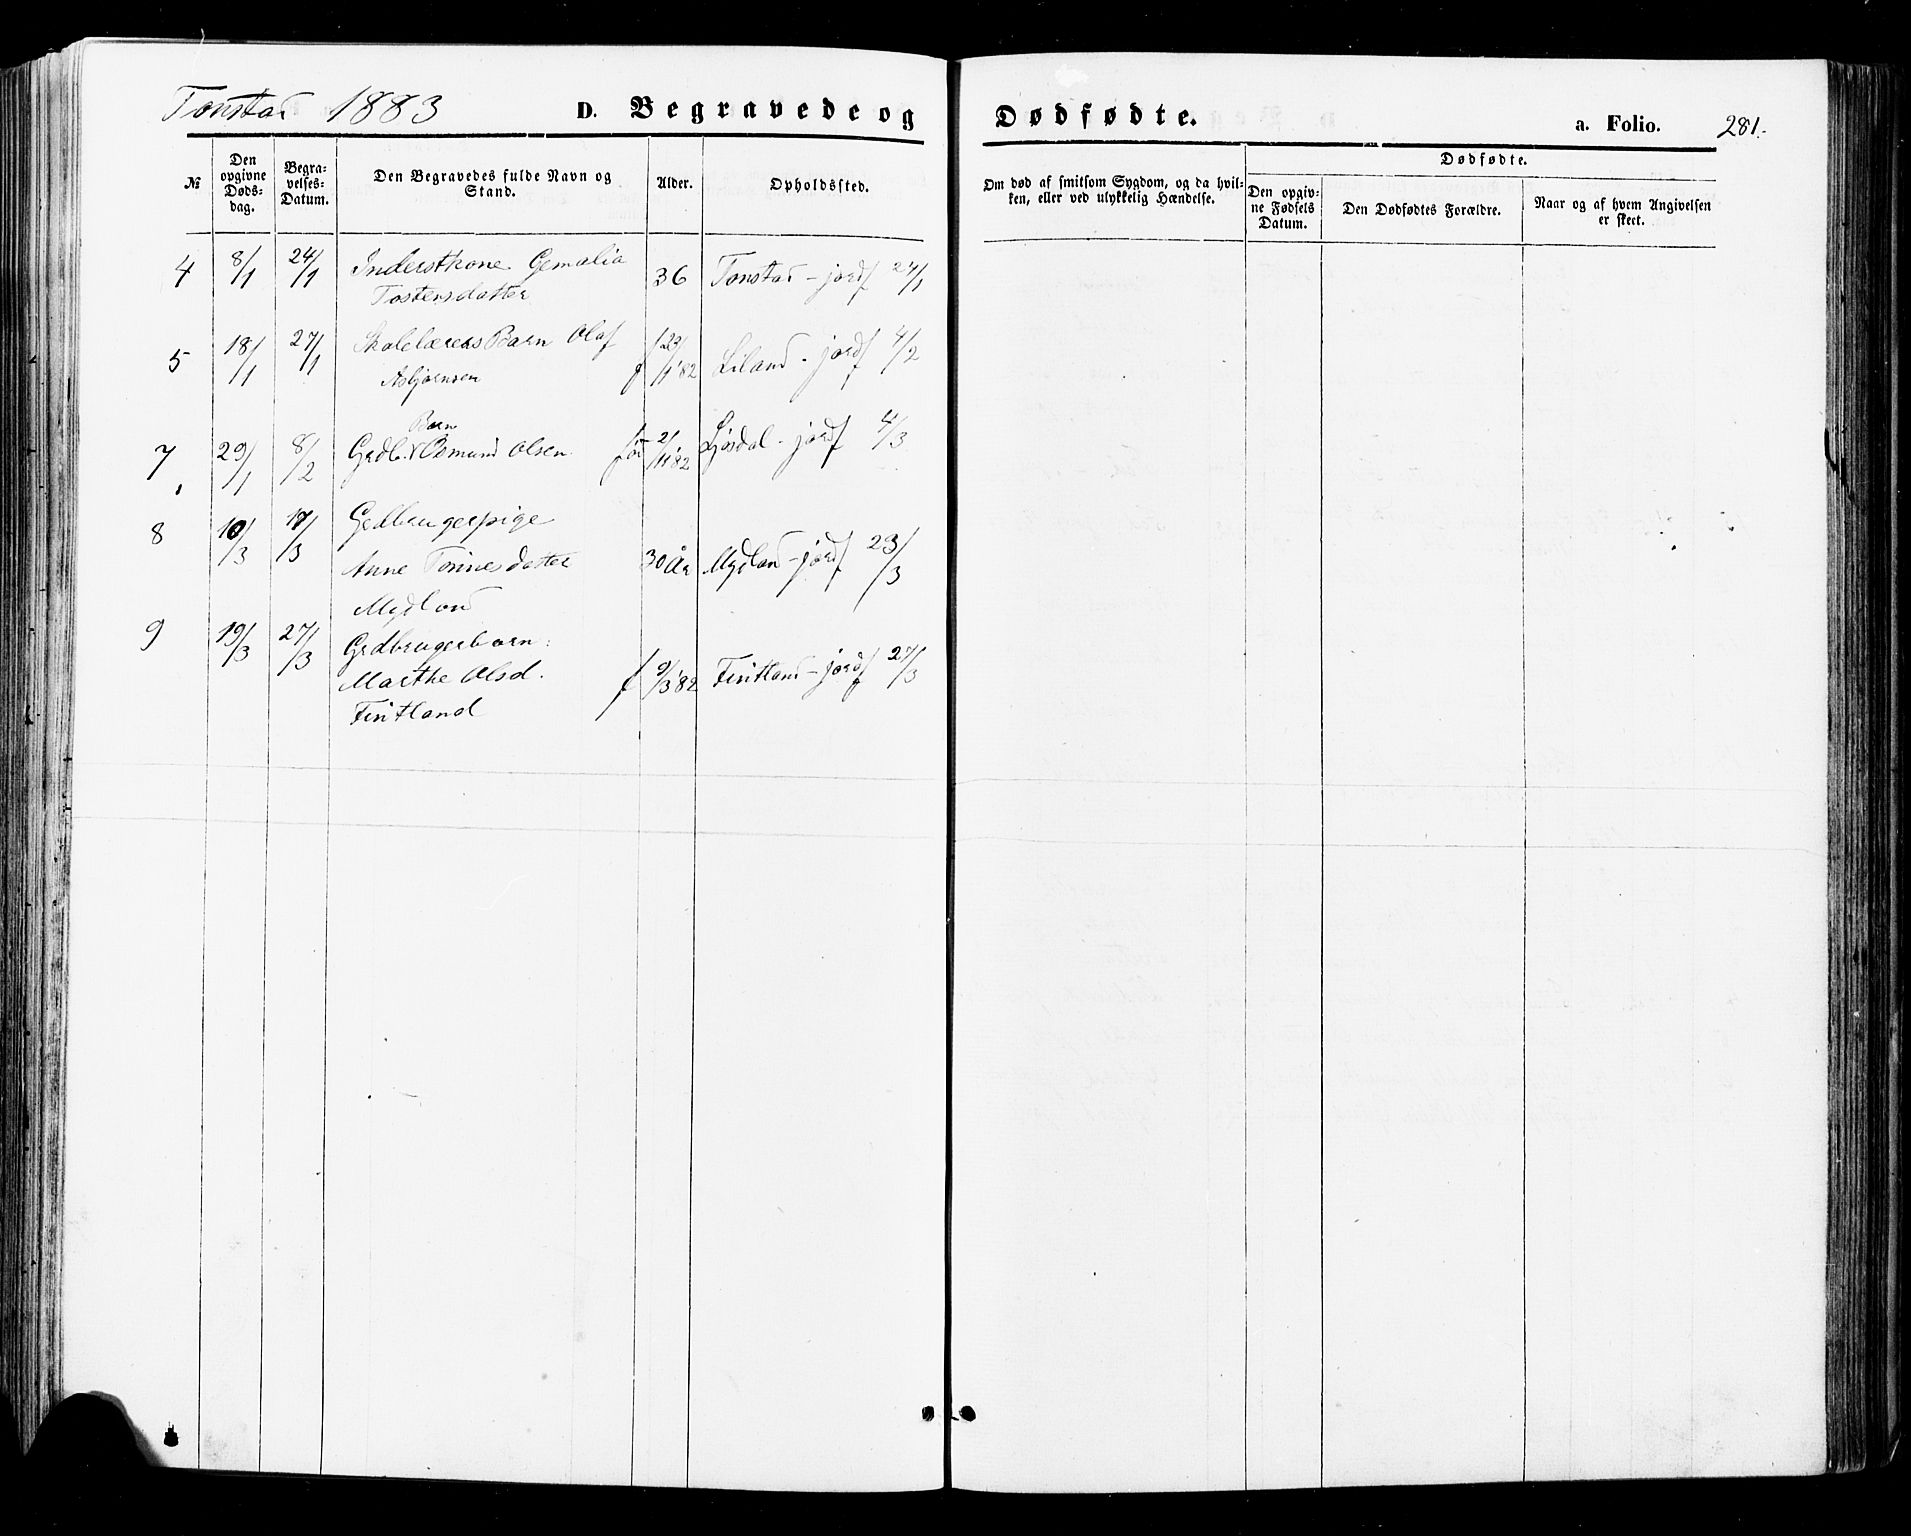 Tonstad 1883 D. Begravede og Dødfødte. a. Folio. 281.
№
Den opgivne Døds-dag.
Begra-velses-Datum.
Den Begravedes fulde Navn og Stand.
Alder.
Opholdssted.
Om død af smitsom Sygdom, og da hvil-
ken, eller ved ulykkelig Hændelse.
Dødfødte.
Den opgiv-
ne Fødsels
Datum.
Den Dødfødtes Forældre.
Naar og af hvem Angivelsen
er skeet.
4 8/1 24/1 Inderstkone Gemalia 36 Tonstad - jordf 24/1
Tostensdatter
5 18/1 27/1 Skolelærers Barn Olaf f 23/1 '82 Liland - jordf 4/2
Asbjørnsen
Barn
7 29/1 8/2 Grdb. Osmund Olsen 2/11 '82 Ljosdal - jordf 4/3
8 10/3 17/3 Grdbrugerpige
Anne Tønnesdatter 30 År Mydland - jordf 23/3
Mydland
9 19/3 27/3 Grdbrugerbarn:
Marthe Olsd. f 9/3 '82 Fintland - jordf 27/3
Fintland